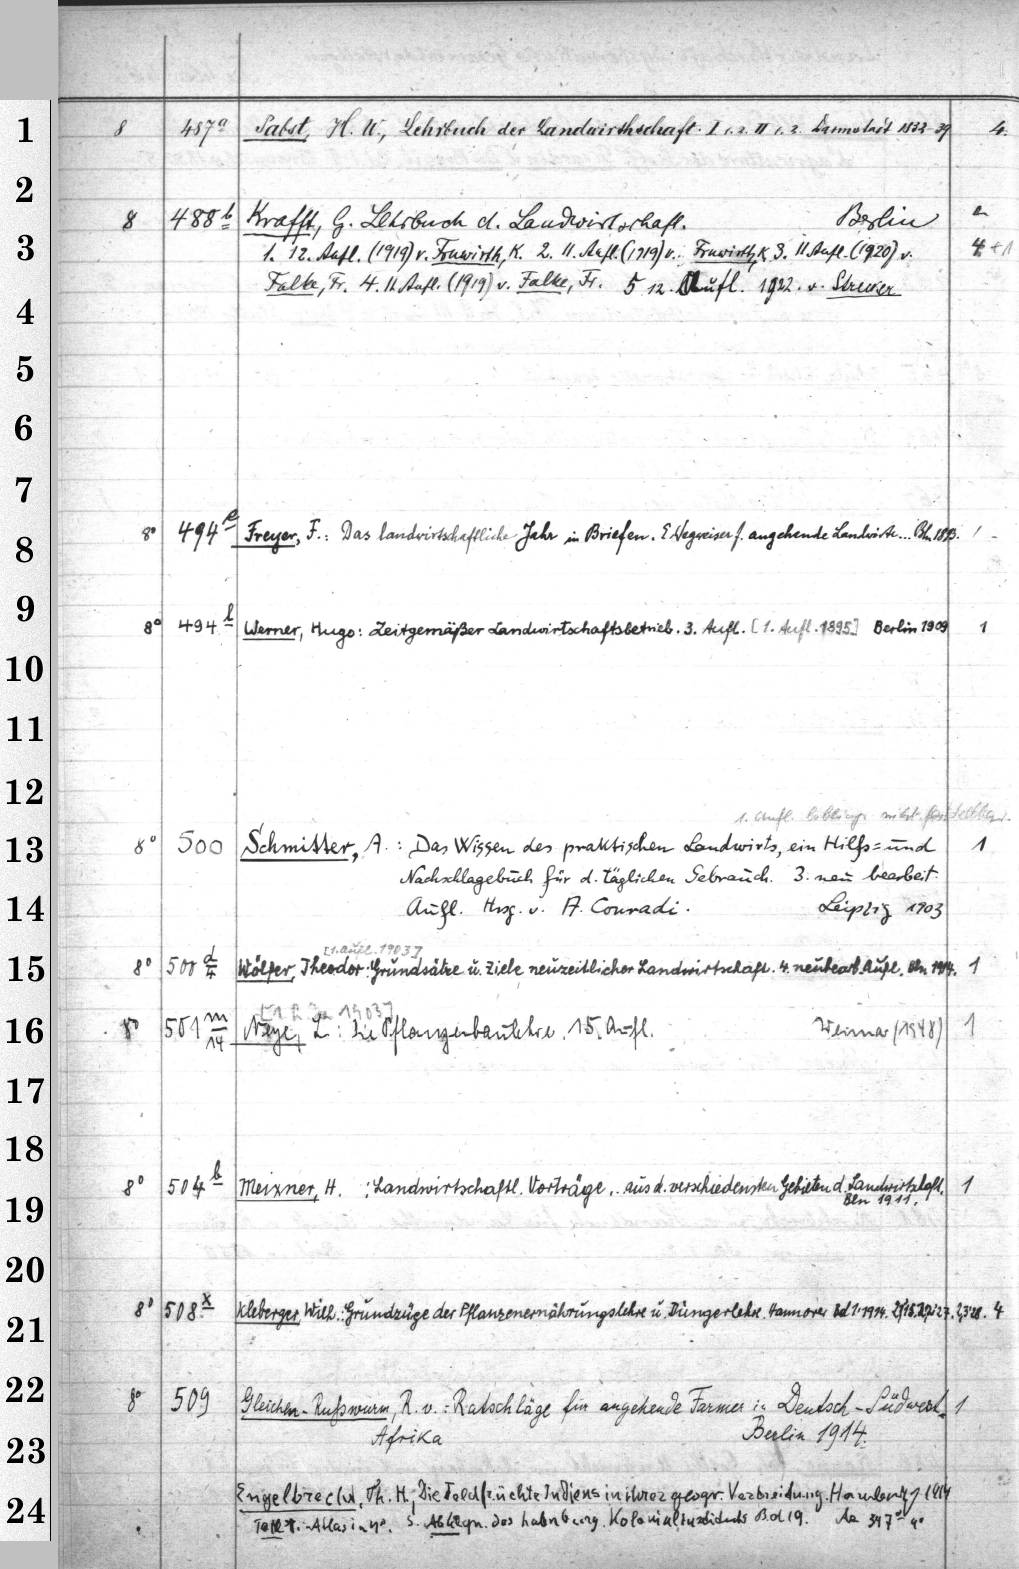 1 8 487a Pabst, H. W., Lehrbuch der Landwirthschaft. I 1.2. II 1.2. Darmstadt 1832-39 4.
2
8 488b Krafft, G. Lehrbuch d. Landwirtschaft. Berlin
3 1. 12. Aufl. (1919) v. Fruwirth, K. 2. 11. Aufl. (1919) v. Fruwirth, K 3. 11 Aufl. (1920) v. 4 + 1
Falke, Fr. 4. 11 Aufl. (1919) v. Falke, Fr. 5 12. Aufl. 1922. v.
4
5
6
7
8° 494e Freyer, F.: Das landwirtschaftliche Jahr in Briefen. E Wegweiser f. angehende Landwirte... Bln 1893. 1
8
9
8° 494l Werner, Hugo: Zeitgemäßer Landwirtschaftsbetrieb. 3. Aufl. [1. Aufl. 1895] Berlin 1909 1
10
11
12
1. Aufl. nicht
13 8° 500 Schmitter, A.: Das Wissen des praktischen Landwirts, ein Hilfs= und 1
Nachschlagebuch für d. täglichen Gebrauch. 3. neu bearbeit.
14 Aufl. Hrsg. v. A. Conradi. Leipzig 1903
[1. Aufl. 1903]
15 8° 500 d/4 Wölfer, Theodor: Grundsätze u. Ziele neuzeitlicher Landwirtschaft. 4. neubearb. Aufl. Bln 1914. 1
1903]
16 8° 501 m/14 Neye, L: Die Pflanzenbaulehre. 15. Aufl. Weimar (1948) 1
17
18
8° 504b Meixner, H.: Landwirtschaftl. Vorträge.. aus d. verschiedensten Gebieten d. Landwirtschaft. 1
19 Bln 1911.
20
8° 508x Kleberger, Wilh.: Grundzüge der Pflanzenernährungslehre u. Düngerlehre. Hannover Bd 1. 1914. 4
21
22 8° 509 Gleichen-Rußwurm, R. v.: Ratschläge für angehende Farmer in Deutsch-Südwest- 1
23 Afrika Berlin 1914.
Engelbrecht, Th. H., Die Feldfrüchte Indiens in ihrer geogr. Verbreitung. Hamburg 1914
24 Atlas in 4°. S. Abhdgn. des hamburg. Kolonialinstituts Bd 19. Aa 347 4°